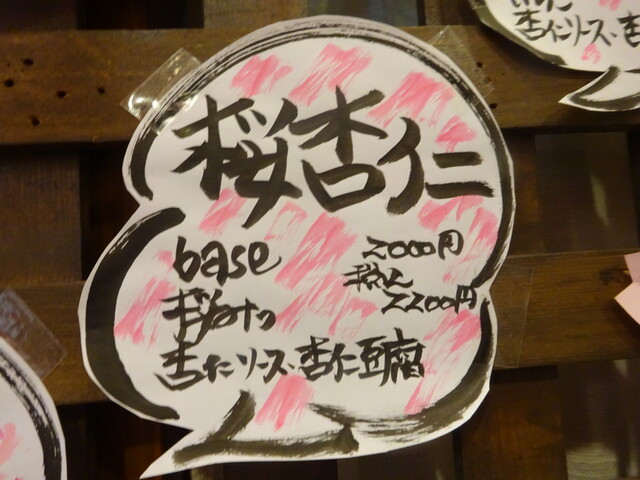 桜杏仁
base
2000円
税込
2200円
杏仁ソース・杏仁豆腐
杏仁ソース・杏